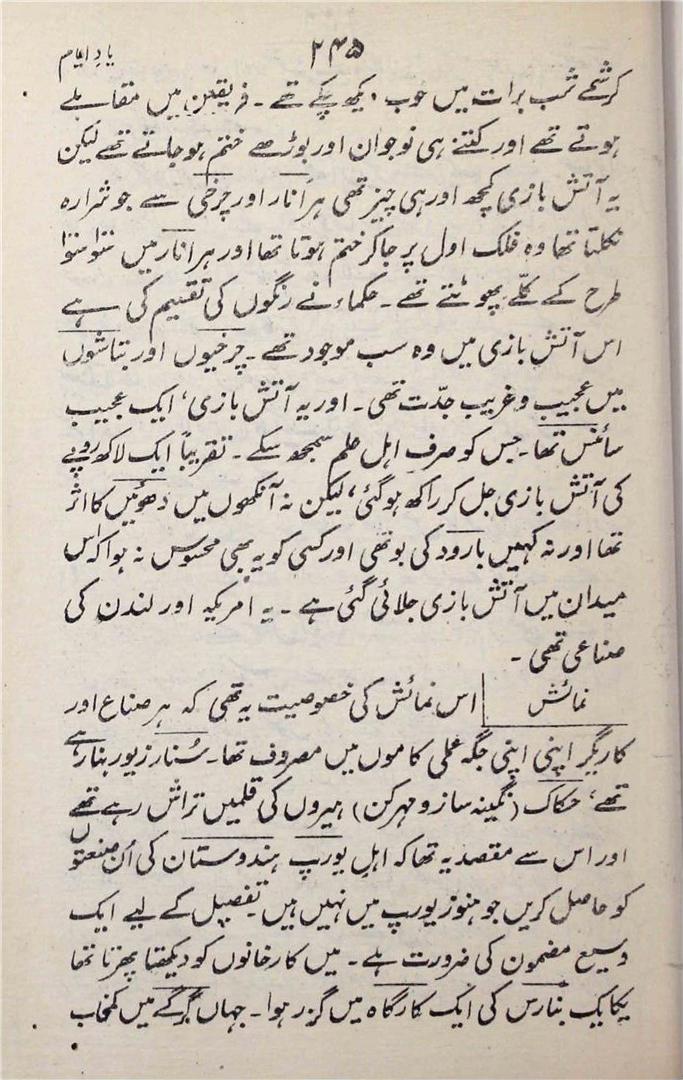 یادِ ایام
۲۴۵
کرشمے شب برات میں خوب دیکھ چکے تھے ۔ فریقین میں مقابلے
ہوتے تھے اور کتنے ہی نوجوان اور بوڑھے ختم ہو جاتے تھے لیکن
یہ آتش بازی کچھ اور ہی چیز تھی ہر انار اور چرخی سے جو شرارہ
نکلتا تھا وہ فلک اول پر جا کر ختم ہوتا تھا اور ہر انار میں سَو سَو
طرح کے گلے پھوٹتے تھے ۔ حکماء نے رنگوں کی تقسیم کی ہے
اس آتش بازی میں وہ سب موجود تھے ۔ چرخیوں اور بتاشوں
میں عجیب و غریب جدّت تھی ۔ اور یہ آتش بازی، ایک عجیب
سائنس تھا ۔ جس کو صرف اہل علم سمجھ سکے ۔ تقریباً ایک لاکھ روپے
کی آتش بازی جل کر راکھ ہوگئی، لیکن نہ آنکھوں میں دھوئیں کا اثر
تھا اور نہ کہیں بارود کی بو تھی اور کسی کو یہ بھی محسوس نہ ہوا کہ اس
میدان میں آتش بازی جلائی گئی ہے ۔ یہ امریکہ اور لندن کی
صناعی تھی ۔
نمائش | اس نمائش کی خصوصیت یہ تھی کہ ہر صناع اور
کاریگر اپنی اپنی جگہ عملی کاموں میں مصروف تھا ۔ سُنار زیور بنا رہے
تھے، حکاک (نگینہ ساز و مہرکن) ہیروں کی قلمیں تراش رہے تھے
اور اس سے مقصد یہ تھا کہ اہل یورپ ہندوستان کی اُن صنعتوں
کو حاصل کریں جو ہنوز یورپ میں نہیں ہیں تفصیل کے لیے ایک
وسیع مضمون کی ضرورت ہے ۔ میں کارخانوں کو دیکھتا پھرتا تھا
یکایک بنارس کی ایک کارگاہ میں گزر ہوا ۔ جہاں گرگے میں کمخاب